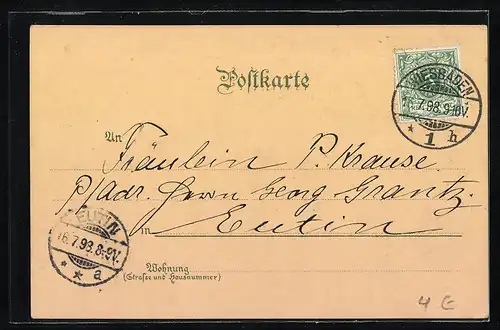 Postkarte
WIESBADEN
7.98.9-10V.
* 1 h
An
Fräulein P. Krause.
p/adr. Herrn Georg Grantz.
in Eutin
EUTIN
16.7.98.8-9V.
* * a
Wohnung
(Straße und Hausnummer)
4 €